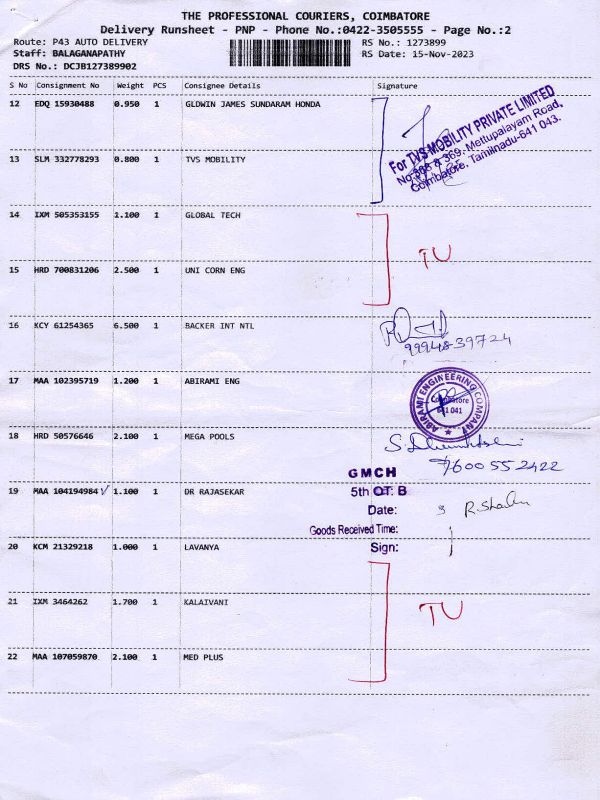 THE PROFESSIONAL COURIERS, COIMBATORE
Delivery Runsheet - PNP - Phone No.:0422-3505555 - Page No.:2
Route: P43 AUTO DELIVERY RS No.: 1273899
Staff: BALAGANAPATHY RS Date: 15-Nov-2023
DRS No.: DCJB127389902
S No Consignment No Weight PCS Consignee Details Signature
12 EDQ 15930488 0.950 1 GLDWIN JAMES SUNDARAM HONDA
For TVS MOBILITY PRIVATE LIMITED
No.368 & 369, Mettupalayam Road,
Coimbatore, Tamilnadu-641 043.
13 SLM 332778293 0.800 1 TVS MOBILITY
14 IXM 505353155 1.100 1 GLOBAL TECH
TU
15 HRD 700831206 2.500 1 UNI CORN ENG
16 KCY 61254365 6.500 1 BACKER INT NTL
99948-39724
17 MAA 102395719 1.200 1 ABIRAMI ENG
ABIRAMI ENGINEERING COMPANY
Coimbatore
641 041
18 HRD 50576646 2.100 1 MEGA POOLS
9600552422
GMCH
19 MAA 104194984 1.100 1 DR RAJASEKAR 5th OT: B
Date:
Goods Received Time:
20 KCM 21329218 1.000 1 LAVANYA Sign:
21 IXM 3464262 1.700 1 KALAIVANI
TU
22 MAA 107059870 2.100 1 MED PLUS